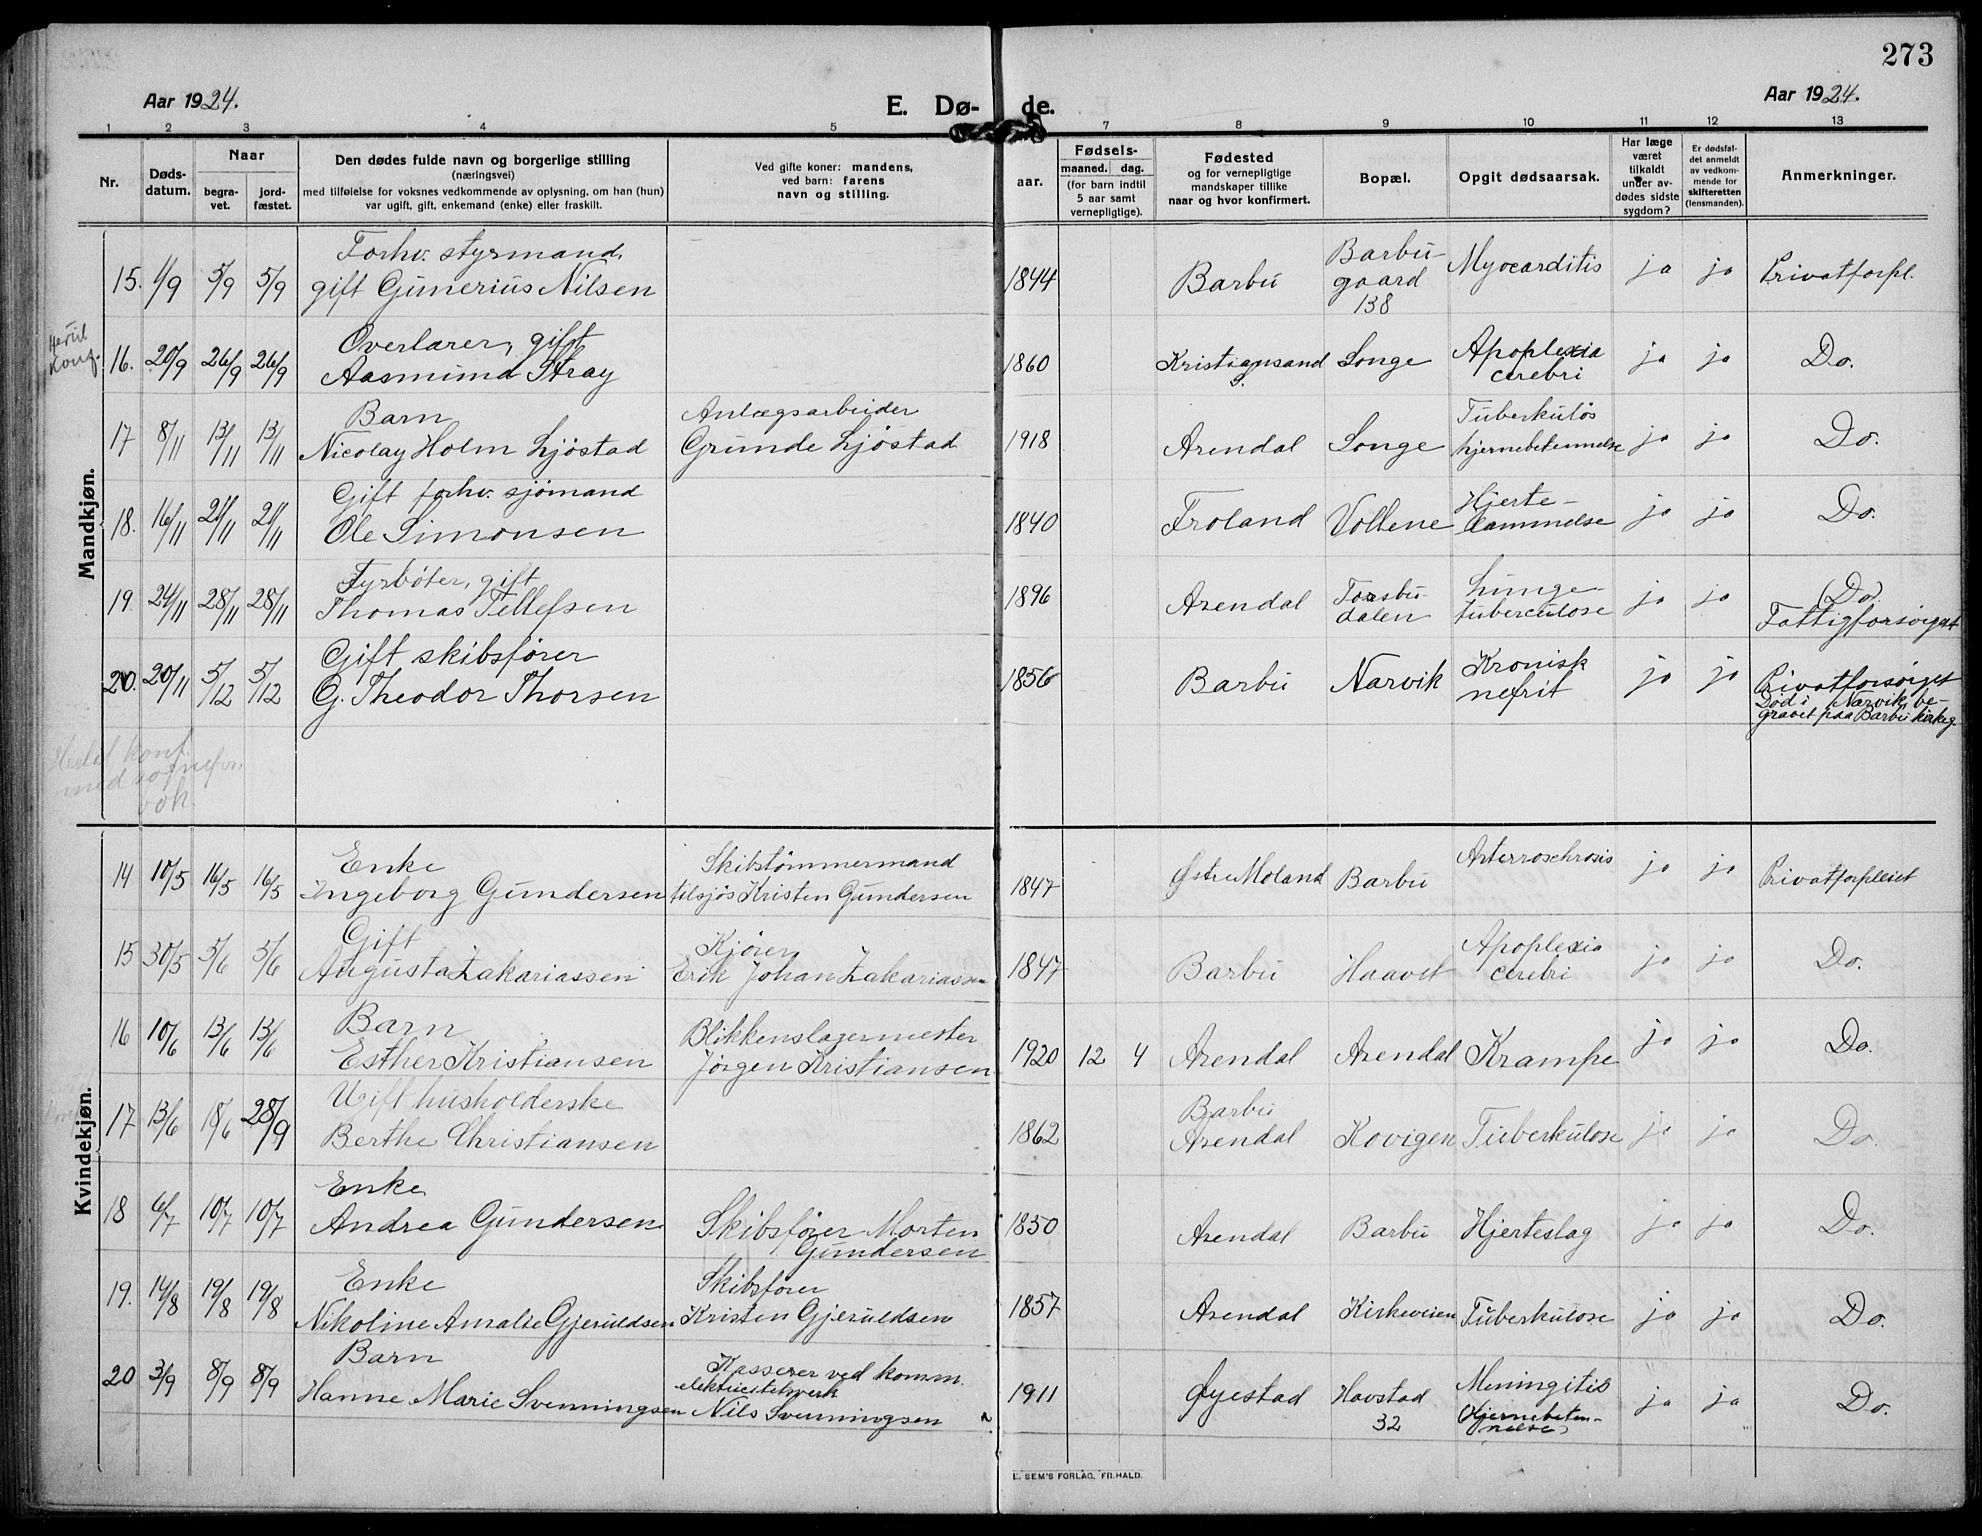 273
Aar 1924.
E. Dø- de.
Aar 1924.
1 2 3 4 5 7 8 9 10 11 12 13
Nr.
Døds-
datum.
Naar
begra-
vet.
jord-
fæstet.
Den dødes fulde navn og borgerlige stilling
(næringsvei)
med tilføielse for voksnes vedkommende av oplysning, om han (hun)
var ugift, gift, enkemand (enke) eller fraskilt.
Ved gifte koner: mandens,
ved barn: farens
navn og stilling.
aar.
Fødsels-
maaned. dag.
(for barn indtil
5 aar samt
vernepligtige).
Fødested
og for vernepligtige
mandskaper tillike
naar og hvor konfirmert.
Bopæl.
Opgit dødsaarsak.
Har læge
været
tilkaldt
under av-
dødes sidste
sygdom?
Er dødsfal-
det anmeldt
av vedkom-
mende for
skifteretten
(lensmanden).
Anmerkninger.
Mandkjøn.
15. 1/9 5/9 5/9
Forhv. styrmand.
gift Gunerius Nilsen
1844 Barbu
Barbu-
gaard
138
Myocarditis ja ja Privatforpl.
Hertil
konf.
16. 20/9 26/9 26/9
Overlærer, gift
Aasmund Stray
1860 Kristiansand
S.
Songe
Apoplexia
cerebri
ja ja Do.
17 8/11 13/11 13/11
Barn
Nicolay Holm Ljöstad
Anlægsarbeider
Grunde Ljöstad
1918 Arendal Songe
Tuberkuløs
hjernebetennelse
ja ja Do.
18. 16/11 21/11 21/11
Gift forhv. sjömand
Ole Simonsen
1840 Froland Voltene
Hjerte-
lammelse
ja ja Do.
19. 24/11 28/11 28/11
Fyrböter, gift
Thomas Tellefsen
1896 Arendal
Torsbu-
dalen
Lunge-
tuberculose
ja ja
(Do).
Fattigforsörget
20. 20/11 5/12 5/12
Gift skibsförer
G. Theodor Thorsen
1856 Barbu Narvik
Kronisk
nefrit
ja ja
Privatforsörget
Död i Narvik, be-
gravet paa Barbu kirkeg.
Hertil konf.
Kvindekjøn.
14 10/5 16/5 16/5
Enke
Ingeborg Gundersen
Skibstömmermand
tilsjös Kristen Gundersen
1847 Østre Moland Barbu Arterroschrosis ja ja Privatforpleiet
15 30/5 5/6 5/6
Gift
Augusta Zakariassen
Kjörer
Erik Johan Zakariassen
1847 Barbu Haavet
Apoplexia
cerebri
ja ja Do.
16 10/6 13/6 13/6
Barn
Esther Kristiansen
Blikkenslagermester
Jörgen Kristiansen
1920 12 4 Arendal Arendal Krampe ja ja Do.
17 13/6 18/6 28/9
Ugift husholderske
Berthe Christiansen
1862
Barbu
Arendal
Kovigen Tuberkulose ja ja Do.
18 6/7 10/7 10/7
Enke
Andrea Gundersen
Skibsförer Morten
Gundersen
1850 Arendal Barbu Hjerteslag ja ja Do.
19. 14/8 19/8 19/8
Enke
Nikoline Amalie Gjeruldsen
Skibsförer
Kristen Gjeruldsen
1857 Arendal Kirkeveien Tuberkulose ja ja Do.
20 3/9 8/9 8/9
Barn
Hanne Marie Svenningsen
Kasserer ved komm.
elektricitetsverk
Nils Svenningsen
1911 Øyestad
Havstad
32
Meningitis
(Hjernebeten-
nelse)
ja ja Do.
E. SEM'S FORLAG, FR.HALD.